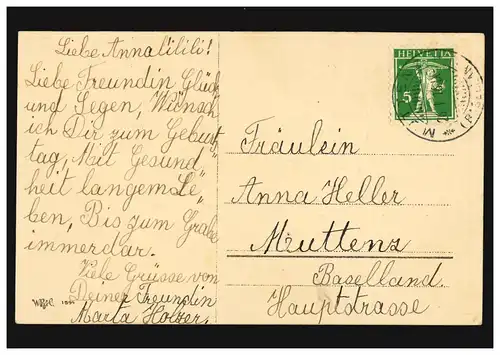 Liebe Annalilili!
Liebe Freundin Glück
und Segen, Wünsch
ich Dir zum Geburts„
tag, Mit Gesund„
heit langem Le„
ben, Bis zum Grabe
immerdar.
Viele Grüsse von
Deiner Freundin
Marta Holzer.
HELVETIA
5
Fräulein
Anna Heller
Muttenz
Baselland
Hauptstrasse